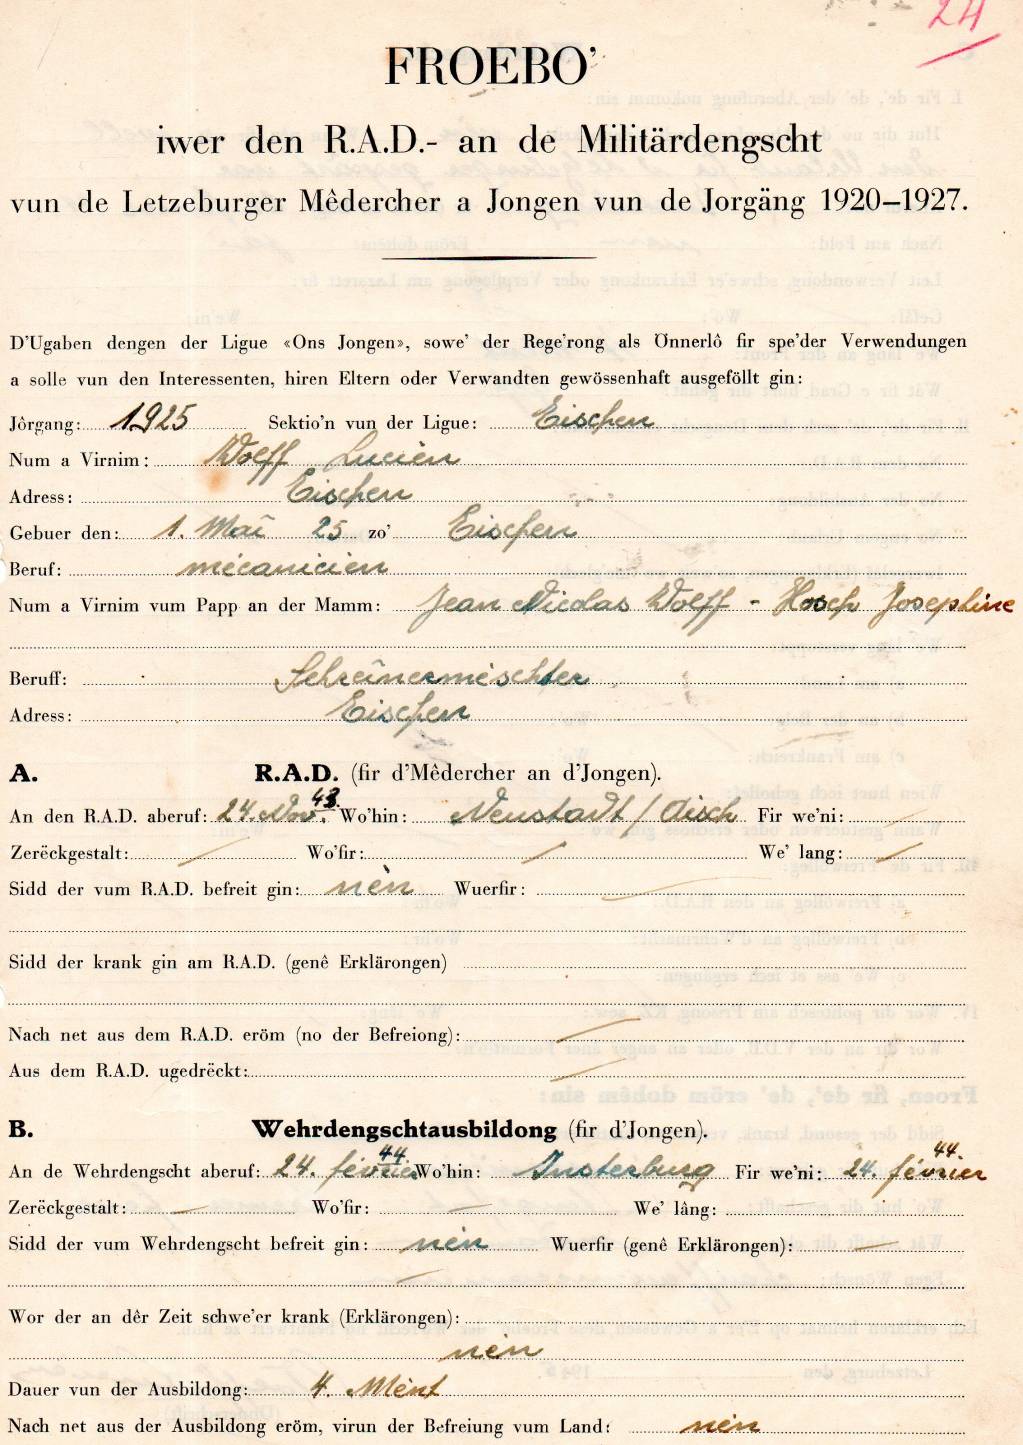 24
FROEBO'
iwer den R.A.D.- an de Militärdengscht
vun de Letzeburger Mêdercher a Jongen vun de Jorgäng 1920–1927.
D'Ugaben dengen der Ligue «Ons Jongen», sowe' der Rege'rong als Önnerlô fir spe'der Verwendungen
a solle vun den Interessenten, hiren Eltern oder Verwandten gewössenhaft ausgeföllt gin:
Jôrgang: 1925 Sektio'n vun der Ligue: Eischen
Num a Virnim: Wolff Lucien
Adress: Eischen
Gebuer den: 1. Mai 25 zo' Eischen
Beruf: mécanicien
Num a Virnim vum Papp an der Mamm: Jean Nicolas Wolff - Hosch Josephine
Beruff: Schreinermeschter
Adress: Eischen
A. R.A.D. (fir d'Mêdercher an d'Jongen).
An den R.A.D. aberuf: 24. Nov. 43. Wo'hin: Neustadt / Aisch Fir we'ni:
Zerëckgestalt: Wo'fir: We' lang:
Sidd der vum R.A.D. befreit gin: nèn Wuerfir:
Sidd der krank gin am R.A.D. (genê Erklärongen)
Nach net aus dem R.A.D. eröm (no der Befreiong):
Aus dem R.A.D. ugedrëckt:
B. Wehrdengschtausbildong (fir d'Jongen).
An de Wehrdengscht aberuf: 24. février 44 Wo'hin: Insterburg Fir we'ni: 24. février 44.
Zerëckgestalt: Wo'fir: We' lâng:
Sidd der vum Wehrdengscht befreit gin: nèn Wuerfir (genê Erklärongen):
Wor der an dêr Zeit schwe'er krank (Erklärongen):
nèn
Dauer vun der Ausbildong: 4. Mént
Nach net aus der Ausbildong eröm, virun der Befreiung vum Land: nèn